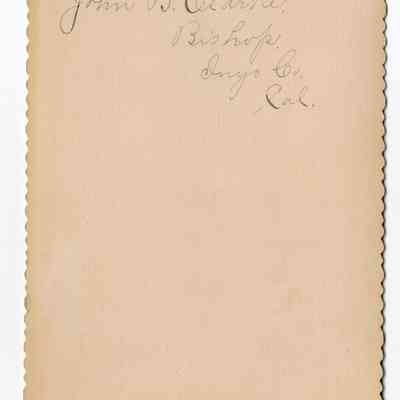 John B. Clarke,
Bishop,
Inyo Co.
Cal.